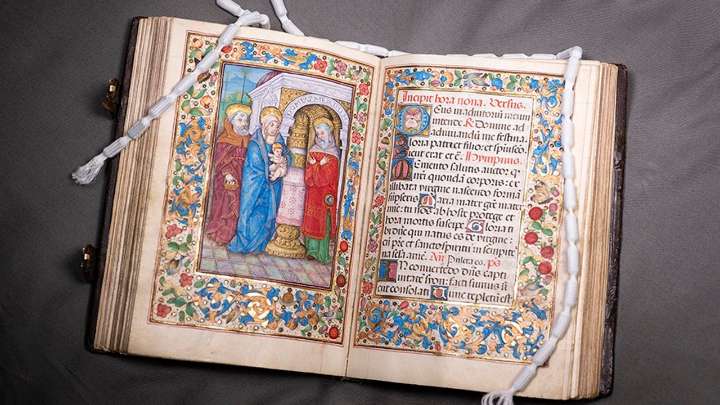 Incipit hora nona. Versus.
Deus in adiutorium meum
intende ℟ Domine ad
adiuuandū me festina.
Gloria patri et filio: et spiritui
sicut erat etc̄. Hympnus.
Memento salutis auctor q̄
nr̄i quondam corporis: ex
illibata virgine nascendo formā
sumpseris Maria mater gr̄e mater
mie: tu nos ab hoste protege et
hora mortis suscipe Gloria ti
bi dn̄e qui natus es de virgine:
cū pr̄e et sancto spiritu in sempit̄
na secula amē. An̄ Pulcra es. ps
In conuertēdo dn̄us capti
uitatē syon: facti sumus si
cut consolati Tunc repletū est